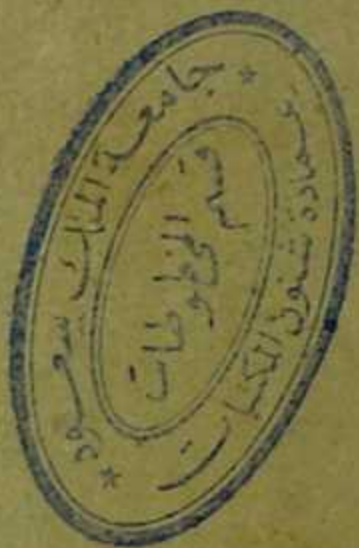 * جامعة الملك سعود *
عمادة شئون المكتبات
قسم المخطوطات